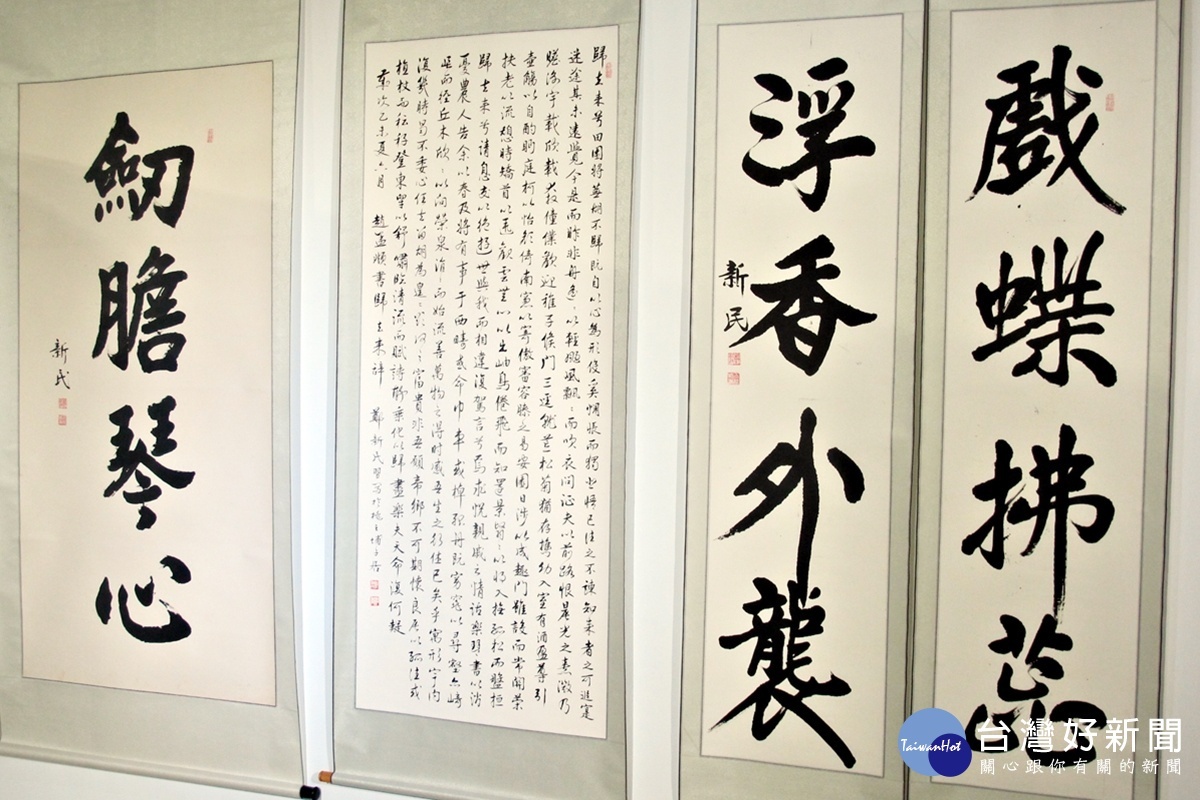 戲蝶拂蕊
浮香外襲
新民
歸去來兮田園將蕪胡不歸既自以心為形役奚惆悵而獨悲悟已往之不諫知來者之可追寔
迷途其未遠覺今是而昨非舟遙〻以輕颺風飄〻而吹衣問征夫以前路恨晨光之熹微乃
瞻衡宇載欣載奔僮僕歡迎稚子候門三逕就荒松菊猶存攜幼入室有酒盈樽引
壺觴以自酌眄庭柯以怡顏倚南窗以寄傲審容膝之易安園日涉以成趣門雖設而常關策
扶老以流憩時矯首以遐觀雲無心以出岫鳥倦飛而知還景翳〻以將入撫孤松而盤桓
歸去來兮請息交以絕遊世與我而相違復駕言兮焉求悅親戚之情話樂琴書以消
憂農人告余以春及將有事于西疇或命巾車或棹孤舟既窈窕以尋壑亦崎
嶇而徑丘木欣〻以向榮泉涓〻而始流善萬物之得時感吾生之行休已矣乎寓形宇內
復幾時曷不委心任去留胡為遑〻欲何之富貴非吾願帝鄉不可期懷良辰以孤往或
植杖而耘耔登東皋以舒嘯臨清流而賦詩聊乘化以歸盡樂夫天命復何疑
歲次乙未夏六月 趙孟頫書歸去來辭 鄭新民習寫於
劒膽琴心
新民
TaiwanHot
台灣好新聞
關心跟你有關的新聞